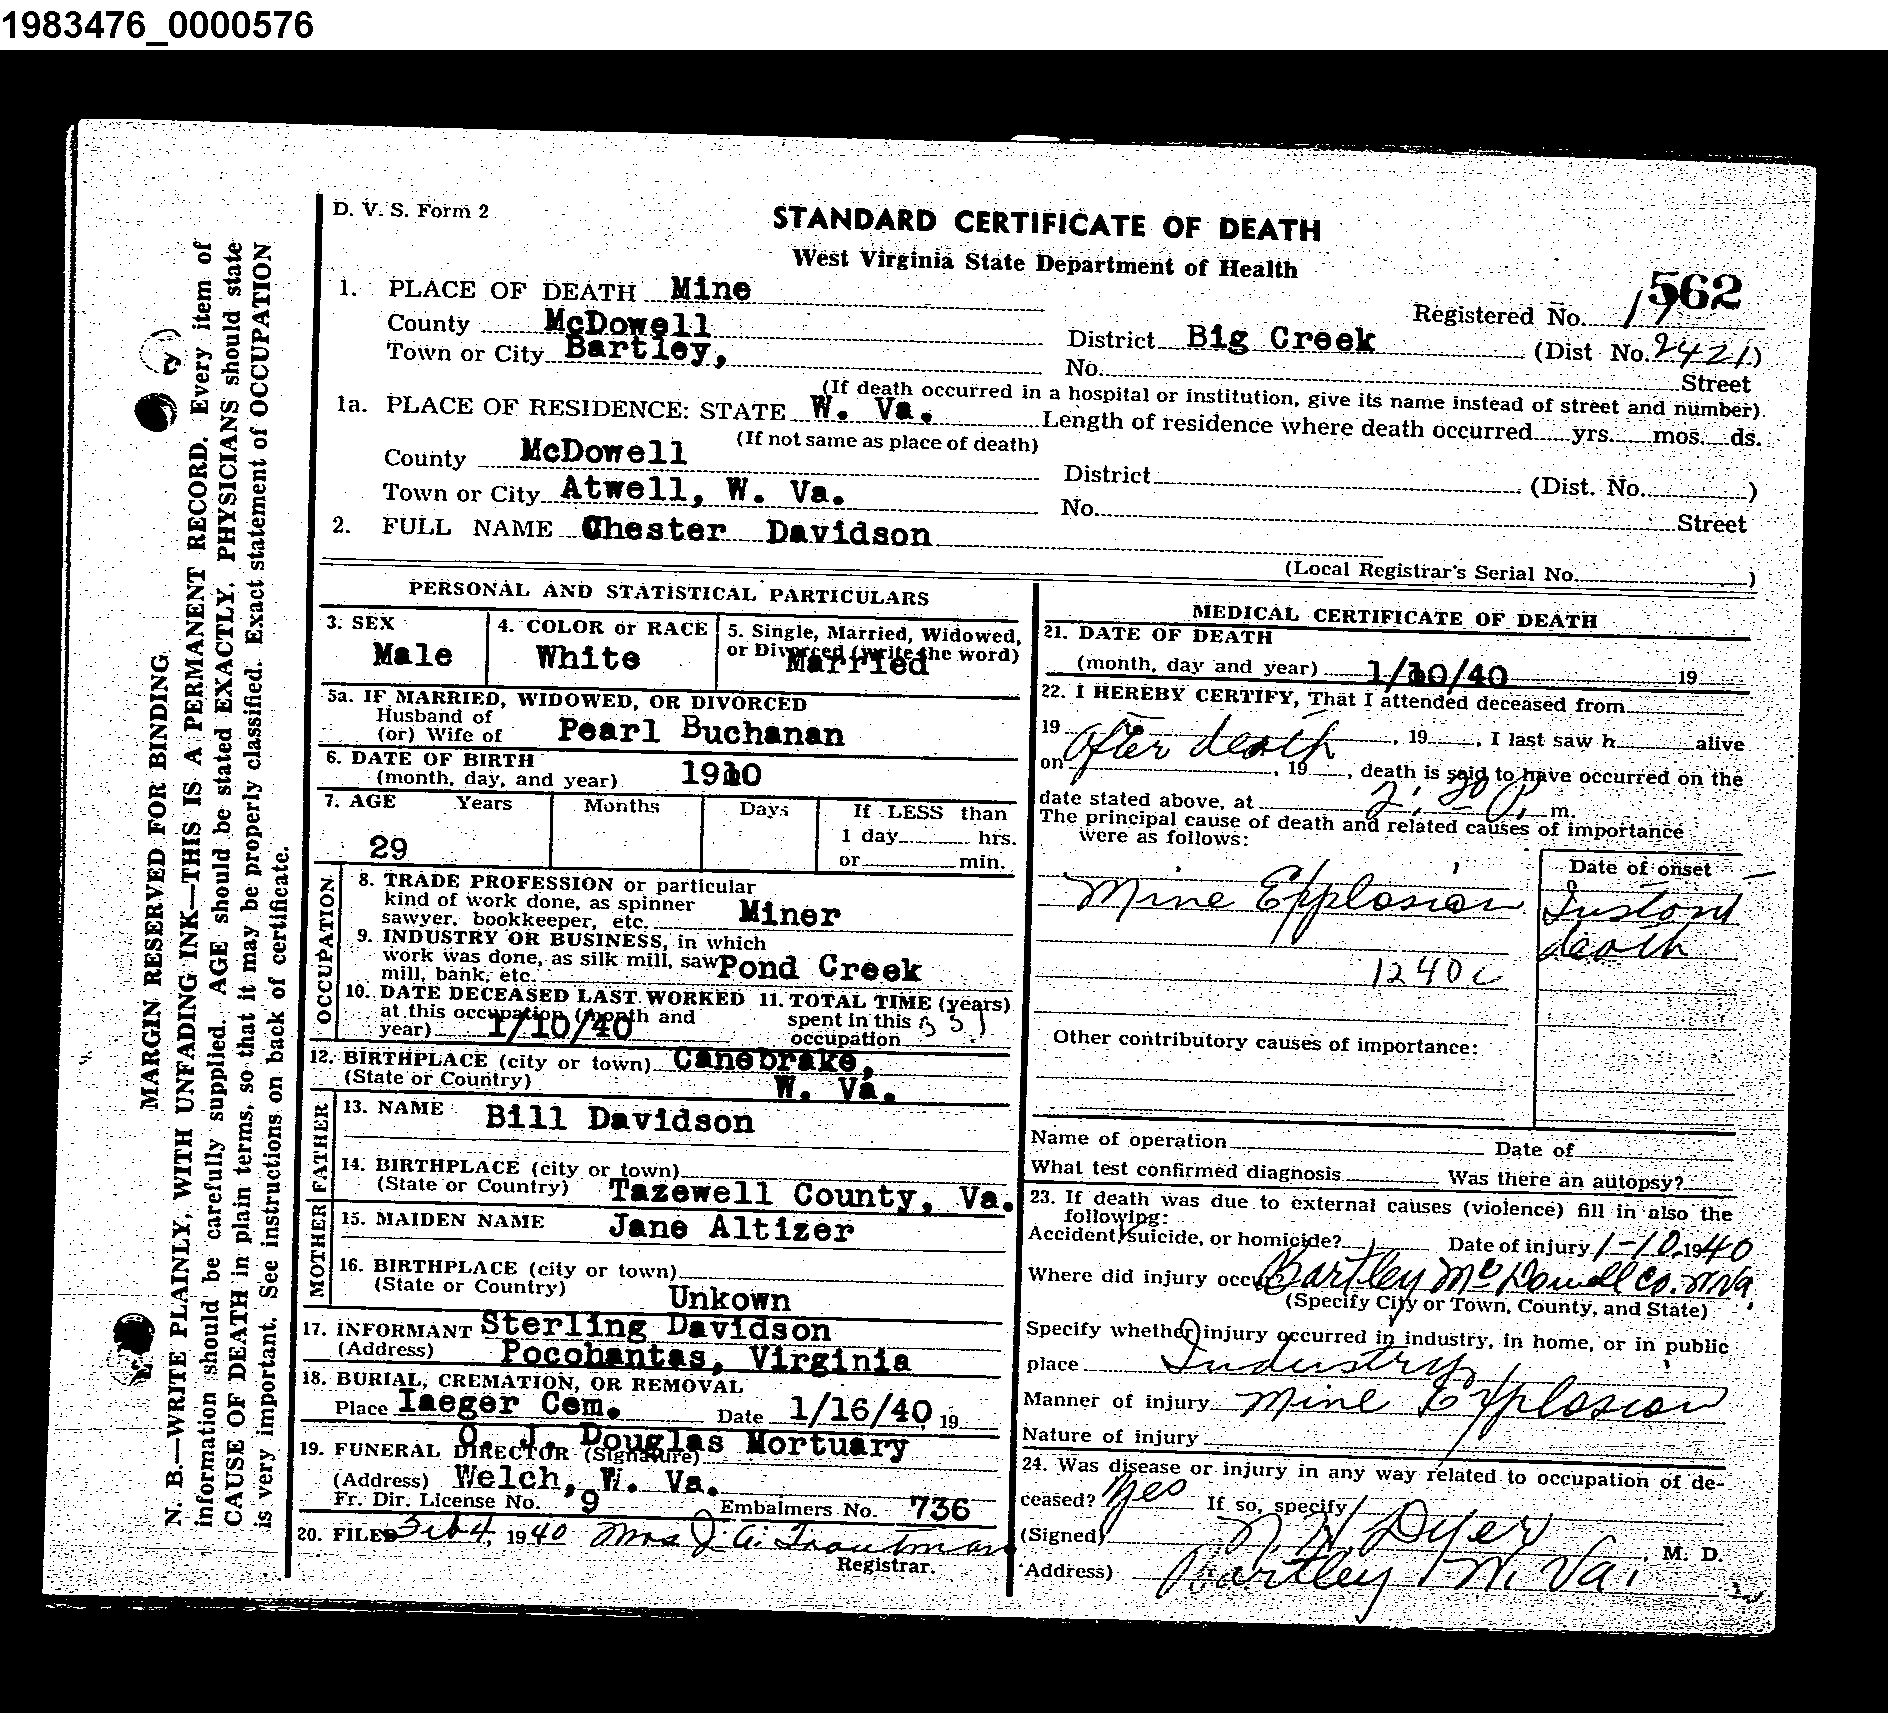 1983476_0000576
D. V. S. Form 2
STANDARD CERTIFICATE OF DEATH
West Virginia State Department of Health
1. PLACE OF DEATH Mine
Registered No. 562
County McDowell
District Big Creek (Dist No. 2421)
Town or City Bartley,
No. Street
(If death occurred in a hospital or institution, give its name instead of street and number).
1a. PLACE OF RESIDENCE: STATE W. Va. Length of residence where death occurred yrs. mos. ds.
(If not same as place of death)
County McDowell District (Dist. No. )
Town or City Atwell, W. Va. No. Street
2. FULL NAME Chester Davidson
(Local Registrar's Serial No. )
PERSONAL AND STATISTICAL PARTICULARS
3. SEX Male
4. COLOR or RACE White
5. Single, Married, Widowed,
or Divorced (write the word)
Married
5a. IF MARRIED, WIDOWED, OR DIVORCED
Husband of
(or) Wife of Pearl Buchanan
6. DATE OF BIRTH
(month, day, and year) 1910
7. AGE Years Months Days If LESS than
1 day hrs.
29 or min.
OCCUPATION
8. TRADE PROFESSION or particular
kind of work done, as spinner
sawyer, bookkeeper, etc. Miner
9. INDUSTRY OR BUSINESS, in which
work was done, as silk mill, saw
mill, bank, etc. Pond Creek
10. DATE DECEASED LAST WORKED
at this occupation (month and
year) 1/10/40
11. TOTAL TIME (years)
spent in this
occupation
12. BIRTHPLACE (city or town) Canebrake,
(State or Country) W. Va.
FATHER
13. NAME Bill Davidson
14. BIRTHPLACE (city or town)
(State or Country) Tazewell County, Va.
MOTHER
15. MAIDEN NAME Jane Altizer
16. BIRTHPLACE (city or town)
(State or Country) Unkown
17. INFORMANT Sterling Davidson
(Address) Pocohantas, Virginia
18. BURIAL, CREMATION, OR REMOVAL
Place Iaeger Cem. Date 1/16/40 19
O. J. Douglas Mortuary
19. FUNERAL DIRECTOR (Signature)
(Address) Welch, W. Va.
Fr. Dir. License No. 9 Embalmers No. 736
20. FILED Feb 4, 1940 Mrs J. A. Troutman
Registrar.
MEDICAL CERTIFICATE OF DEATH
21. DATE OF DEATH
(month, day and year) 1/10/40 19
22. I HEREBY CERTIFY, That I attended deceased from
19 After death, 19, I last saw h alive
on , 19, death is said to have occurred on the
date stated above, at 2:30 P. m.
The principal cause of death and related causes of importance
were as follows:
Date of onset
Mine Explosion Instant
death
1240c
Other contributory causes of importance:
Name of operation Date of
What test confirmed diagnosis Was there an autopsy?
23. If death was due to external causes (violence) fill in also the
following:
Accident, suicide, or homicide? Date of injury 1-10 1940
Where did injury occur Bartley McDowell Co. W Va.
(Specify City or Town, County, and State)
Specify whether injury occurred in industry, in home, or in public
place Industry
Manner of injury Mine Explosion
Nature of injury
24. Was disease or injury in any way related to occupation of de-
ceased? Yes If so, specify
(Signed) N. H. Dyer, M. D.
Address) Bartley W. Va.
MARGIN RESERVED FOR BINDING
N. B.—WRITE PLAINLY, WITH UNFADING INK—THIS IS A PERMANENT RECORD. Every item of
information should be carefully supplied. AGE should be stated EXACTLY. PHYSICIANS should state
CAUSE OF DEATH in plain terms, so that it may be properly classified. Exact statement of OCCUPATION
is very important. See instructions on back of certificate.